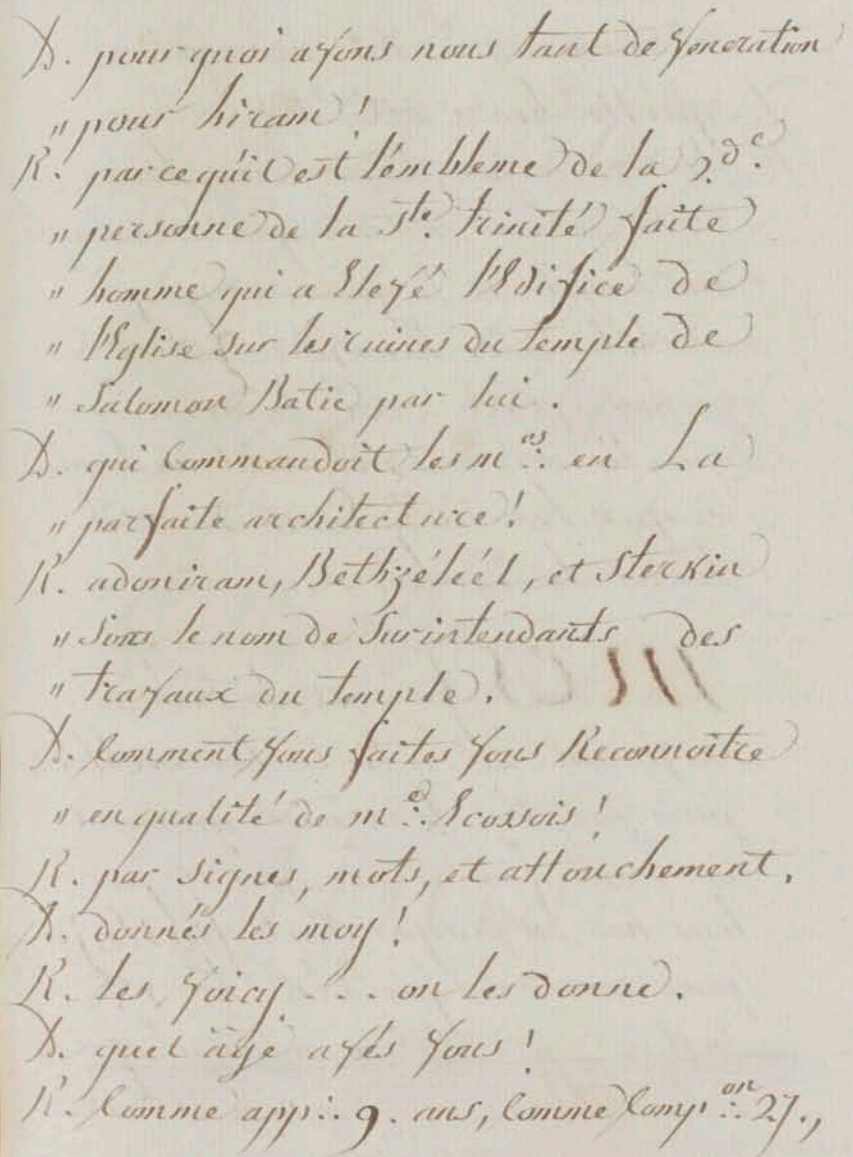 D. pour quoi avons nous tant de Veneration
" pour hiram !
R. parcequ'il est l'embleme de la 2.de.
" personne de la Ste. trinité faite
" homme qui a Elevé l'Edifice de
" l'Eglise sur les ruines du temple de
" Salomon Batie par lui.
D. qui Commandoit les m.es∴ en La
" parfaite architecture !
R. adoniram, Bethzéléél, et Sterkin
" Sous le nom de Surintendants des
" travaux du temple.
D. Comment Vous faites Vous Reconnoitre
" en qualité de m.e∴ Ecossois !
R. par Signes, mots, et attouchement.
D. donnés les moy !
R. les Voicy . . . on les donne.
D. quel âge avés Vous !
R. Comme app∴ 9. ans, Comme Comp.on∴ 27.,